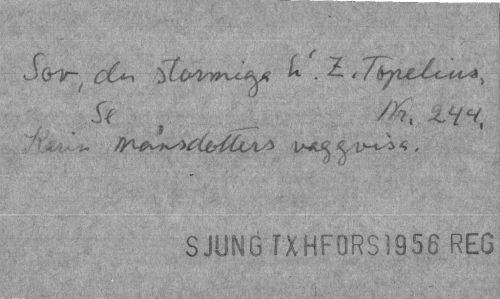 Sov, du stormiga h'. Z. Topelius,
Se Nr. 244.
Karin Månsdotters vaggvisa.
SJUNG TXHFORS1956 REG